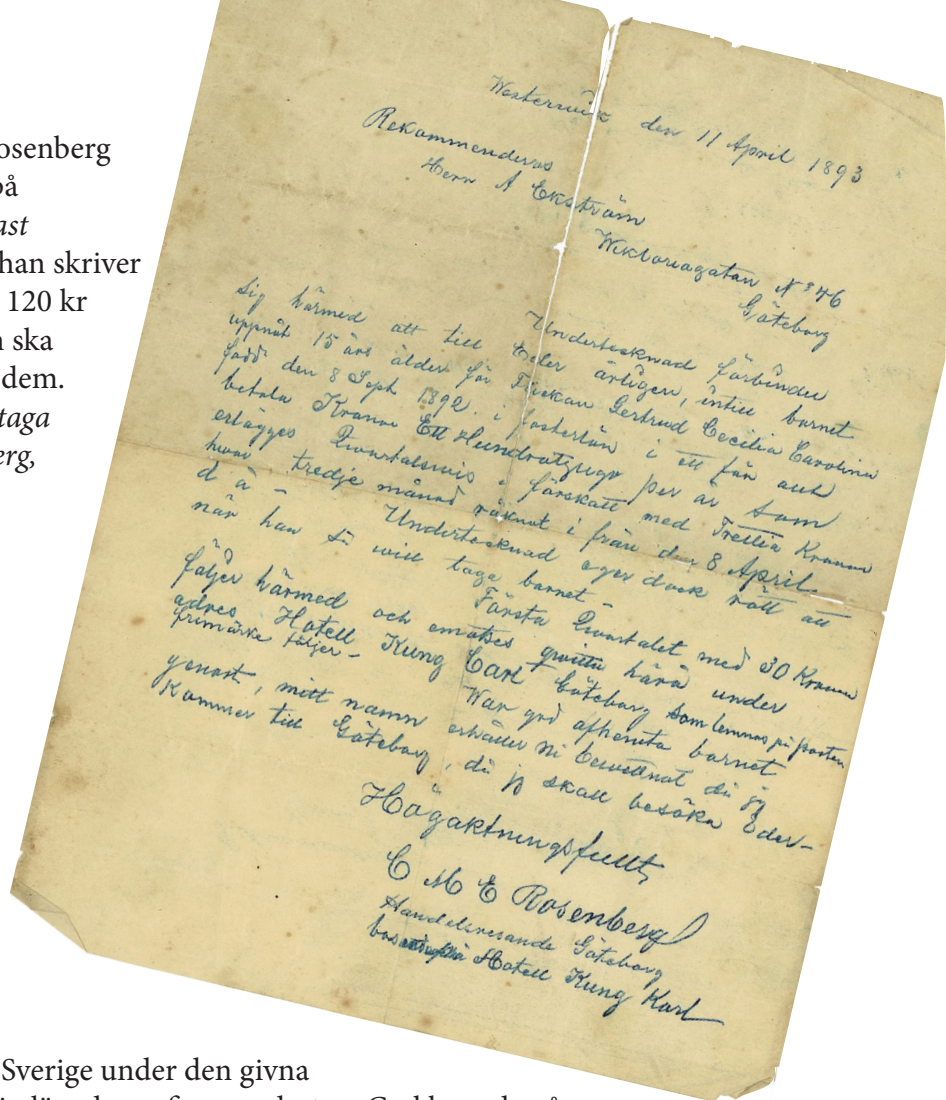 osenberg
på
ast
han skriver
120 kr
n ska
dem.
taga
erg,
Westerwik den 11 April 1893
Rekommenderas
Herr A Ekström
Wiktoriagatan No 46
Göteborg
Undertecknad förbinder
sig härmed att till Eder årligen, intill barnet
uppnåt 15 års ålder för Flickan Gertrud Cecilia Carolina
född den 8 Sept 1892. i fosterlön i ett för allt
betala Kronor Ett Hundratjugo per år som
erlägges Quartalsvis i förskott med Trettio Kronor
hvar tredje månad räknat i från den 8 April.
d å – Undertecknad eger dock rätt att
när han så will taga barnet –
Första Quartalet med 30 Kronor
följer härmed och emotses qvitto härå under
adres Hotell Kung Carl Göteborg som lemnas på posten
frimärke följer –
War god afhemta barnet
genast, mitt namn erhåller Ni bewittnat då jag
kommer till Göteborg, då jg skall besöka Eder –
Högaktningsfullt,
C M E Rosenberg
Handelsresande Göteborg
Hotell Kung Karl
Sverige under den givna